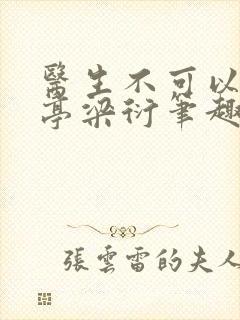 醫生不可以
亭梁衍筆趣
張雲雷的夫人